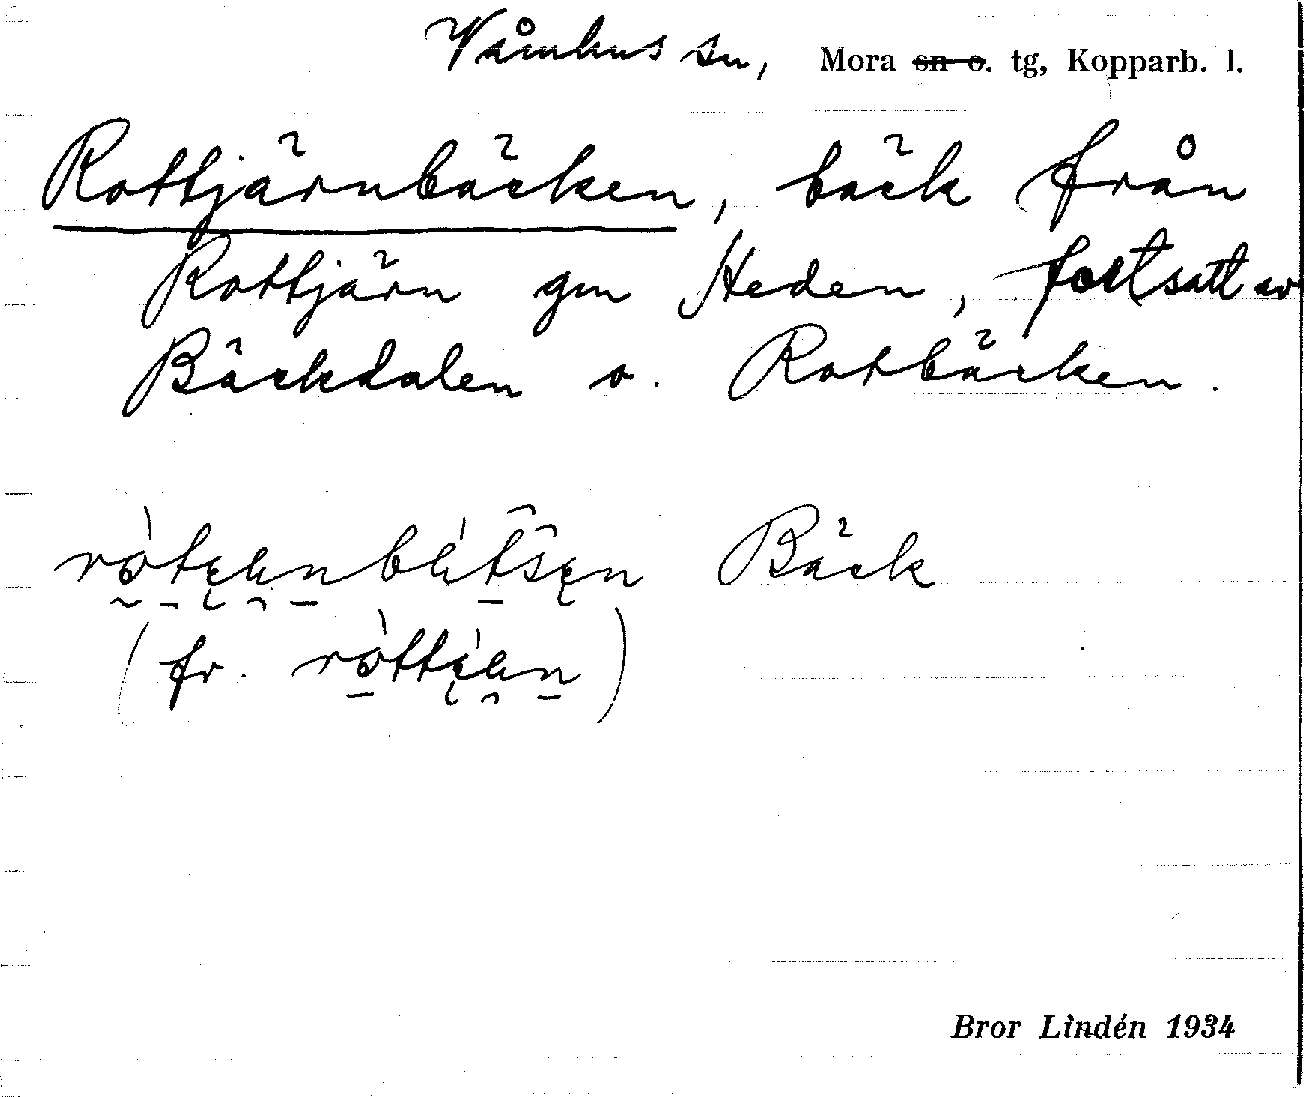 Våmhus sn, Mora sn o. tg, Kopparb. l.
Rottjärnbäcken, bäck från
Rottjärn gm Heden, fortsatt av
Bäckdalen o. Rotbäcken.
Bäck
(fr.
Bror Lindén 1934